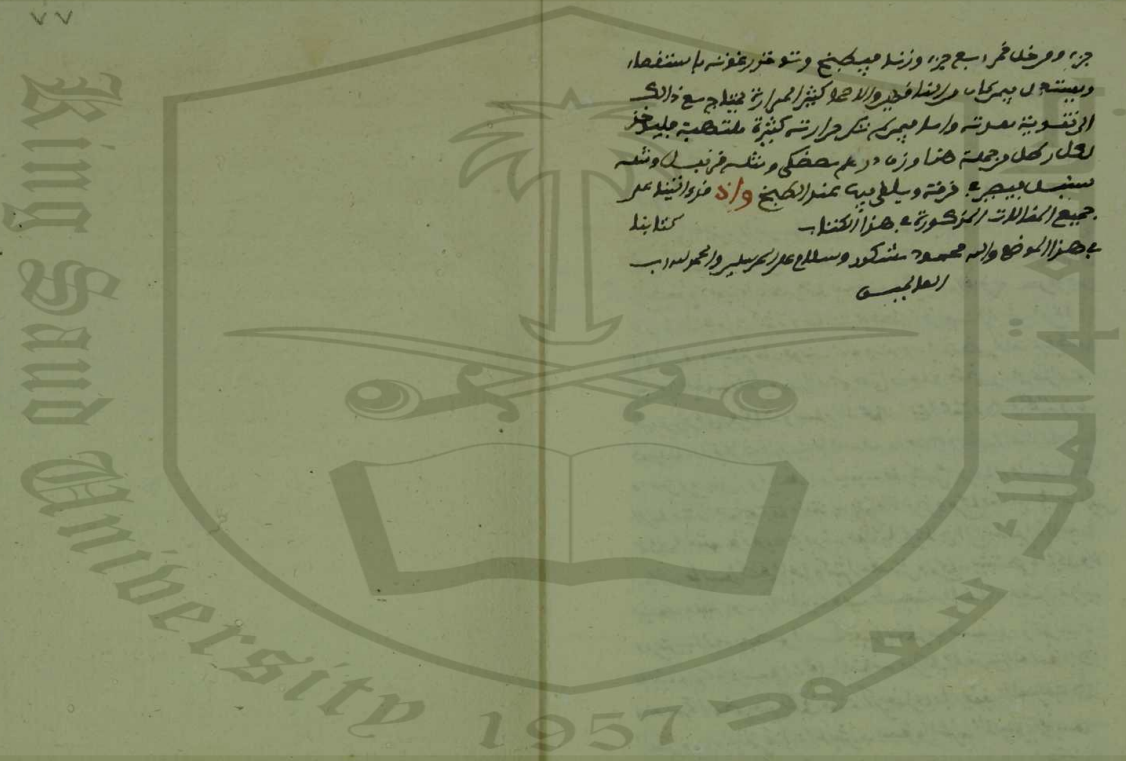 ٧٧
جزء ومن خل خمر سبع جزء وزنا فيطبخ وتنوخذ رغوته باستقصاء
ويستعمل فيمن كان من الناقهين والاصحاء كثير الحرارة يحتاج مع ذالك
الى تقوية معدته واما فيمن لم تكن حرارته كثيرة ملتهبة فليؤخذ
لكل رطل من جملة هذا وزن درهم مصطكى ومثله قرنفل ومثله
سنبل فيصير في خرقة ويلقى فيه عند الطبخ واذ قد اتينا على
جميع المقالات المذكورة في هذا الكتاب كتابنا
في هذا الموضع والله محمود مشكور وسلام على المرسلين والحمد لله رب
العالمين
King Saud University 1957
جامعة الملك سعود